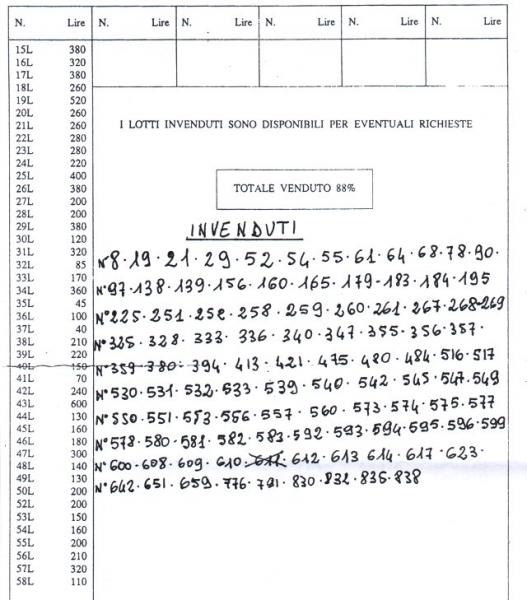 N. Lire N. Lire N. Lire N. Lire N. Lire N. Lire
15L 380
16L 320
17L 380
18L 260
19L 520
20L 260
21L 260
22L 280
23L 280
24L 220
25L 400
26L 380
27L 200
28L 200
29L 380
30L 120
31L 320
32L 85
33L 170
34L 360
35L 45
36L 100
37L 40
38L 210
39L 220
40L 150
41L 70
42L 240
43L 600
44L 130
45L 160
46L 180
47L 300
48L 140
49L 130
50L 200
52L 200
53L 150
54L 160
55L 200
56L 210
57L 320
58L 110
I LOTTI INVENDUTI SONO DISPONIBILI PER EVENTUALI RICHIESTE
TOTALE VENDUTO 88%
INVENDUTI
N°8·19·21·29·52·54·55·61·64·68·78·90·
N°97·138·139·156·160·165·179·183·184·195
N°225·251·252·258·259·260·261·267·268·269
N°325·328·333·336·340·347·355·356·357·
N°359·380·394·413·421·475·480·484·516·517
N°530·531·532·533·539·540·542·545·547·549
N°550·551·553·556·557·560·573·574·575·577
N°578·580·581·582·583·592·593·594·595·596·599
N°600·608·609·610·612·613·614·617·623·
N°642·651·659·776·791·830·832·836·838